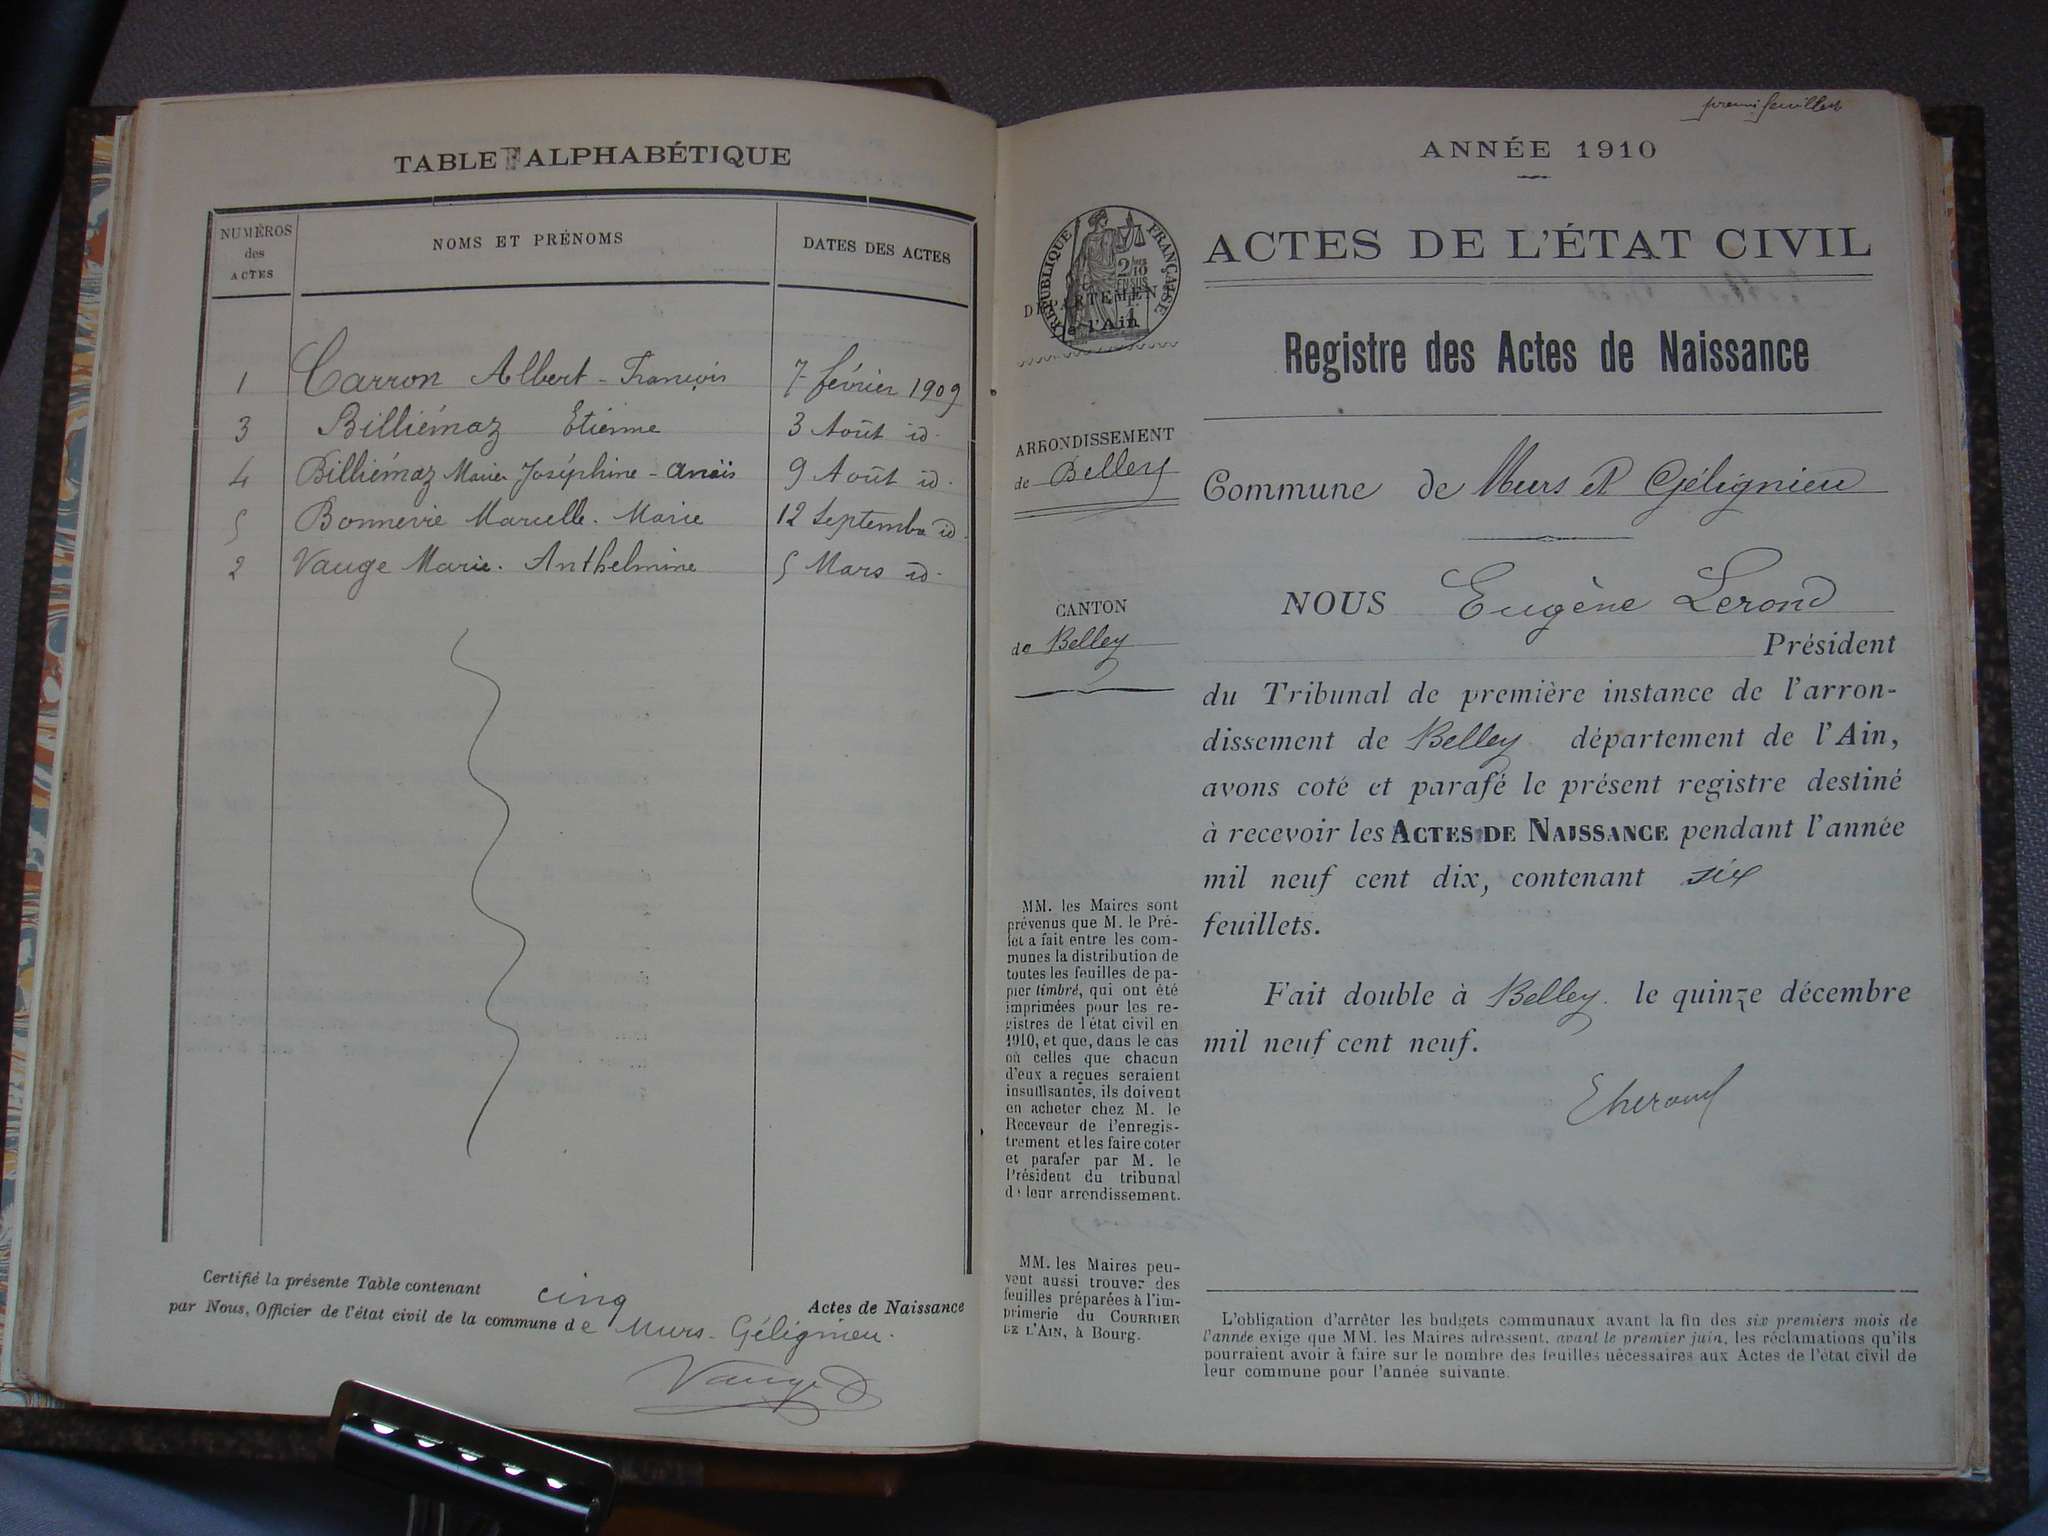 TABLE ALPHABÉTIQUE
NUMÉROS des ACTES
NOMS ET PRÉNOMS
DATES DES ACTES
1 Carron Albert-François 7 février 1909
3 Billiémaz Etienne 3 Août id.
4 Billiémaz Marie Joséphine-Anaïs 9 Août id.
5 Bonnevie Marcelle-Marie 12 Septembre id.
2 Vauge Marie-Anthelmine 5 Mars id.
Certifié la présente Table contenant cinq Actes de Naissance
par Nous, Officier de l'état civil de la commune de Murs-Gélignieu.
Vauge
premi feuillet
ANNÉE 1910
RÉPUBLIQUE FRANÇAISE
2/10 EN SUS
DÉPARTEMENT
de l'Ain
ACTES DE L'ÉTAT CIVIL
Registre des Actes de Naissance
ARRONDISSEMENT
de Belley
Commune de Murs et Gélignieu
CANTON
de Belley
NOUS Eugène Lerond
Président
du Tribunal de première instance de l'arron-
dissement de Belley département de l'Ain,
avons coté et parafé le présent registre destiné
à recevoir les ACTES DE NAISSANCE pendant l'année
mil neuf cent dix, contenant six
feuillets.
Fait double à Belley. le quinze décembre
mil neuf cent neuf.
MM. les Maires sont
prévenus que M. le Pré-
fet a fait entre les com-
munes la distribution de
toutes les feuilles de pa-
pier timbré, qui ont été
imprimées pour les re-
gistres de l'état civil en
1910, et que, dans le cas
où celles que chacun
d'eux a reçues seraient
insuffisantes, ils doivent
en acheter chez M. le
Receveur de l'enregis-
trement et les faire coter
et parafer par M. le
Président du tribunal
de leur arrondissement.
MM. les Maires peu-
vent aussi trouver des
feuilles préparées à l'im-
primerie du COURRIER
DE L'AIN, à Bourg.
L'obligation d'arrêter les budgets communaux avant la fin des six premiers mois de
l'année exige que MM. les Maires adressent, avant le premier juin, les réclamations qu'ils
pourraient avoir à faire sur le nombre des feuilles nécessaires aux Actes de l'état civil de
leur commune pour l'année suivante.